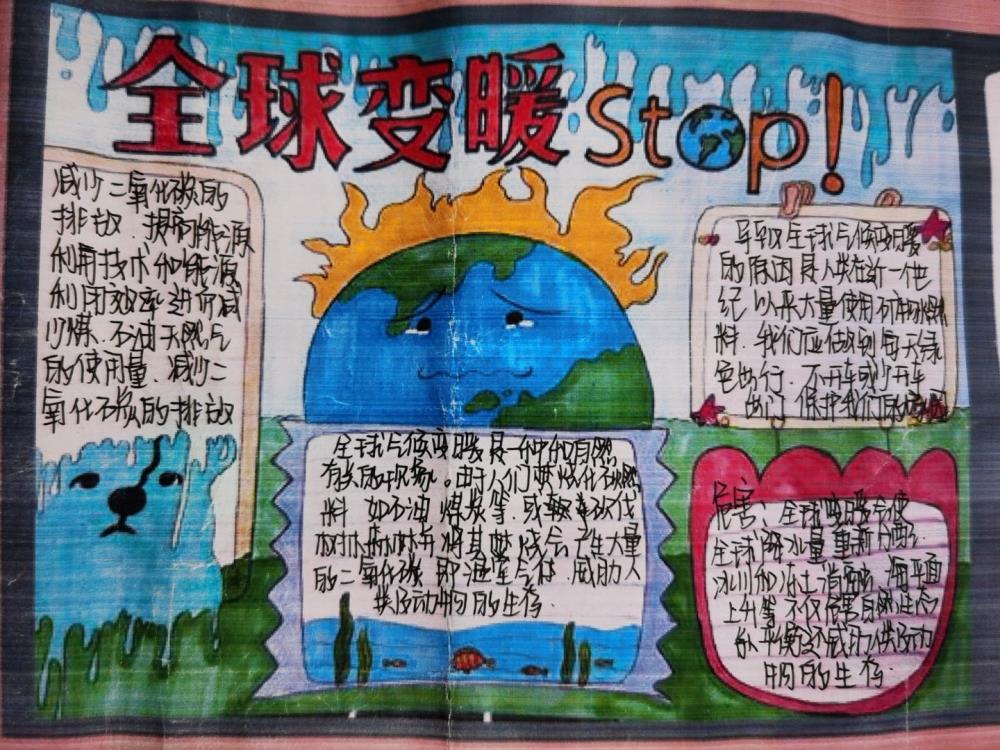 全球变暖Stop!
减少二氧化碳的
排放.提高能源
利用技术和能源
利用效率进而减
少煤.石油天然气
的使用量.减少二
氧化碳的排放
全球气候变暖是一种和自然
有关的现象。由于人们焚烧化石燃
料 如石油 煤炭等.或
将其焚烧会产生大量
的二氧化碳 即温室气体.威胁人
类活动物的生存.
导致全球气候变暖
的原因是人类在近一世
纪 以来大量使用矿物燃
料.我们应做到每天绿
色出行.不开车或少开车
出门 保护我们的
危害:全球变暖会使
全球降水量重新分配.
冰川和冻土消融.海平面
上升等 不仅危害自然生态
的平衡还威胁人类活动
物的生存.